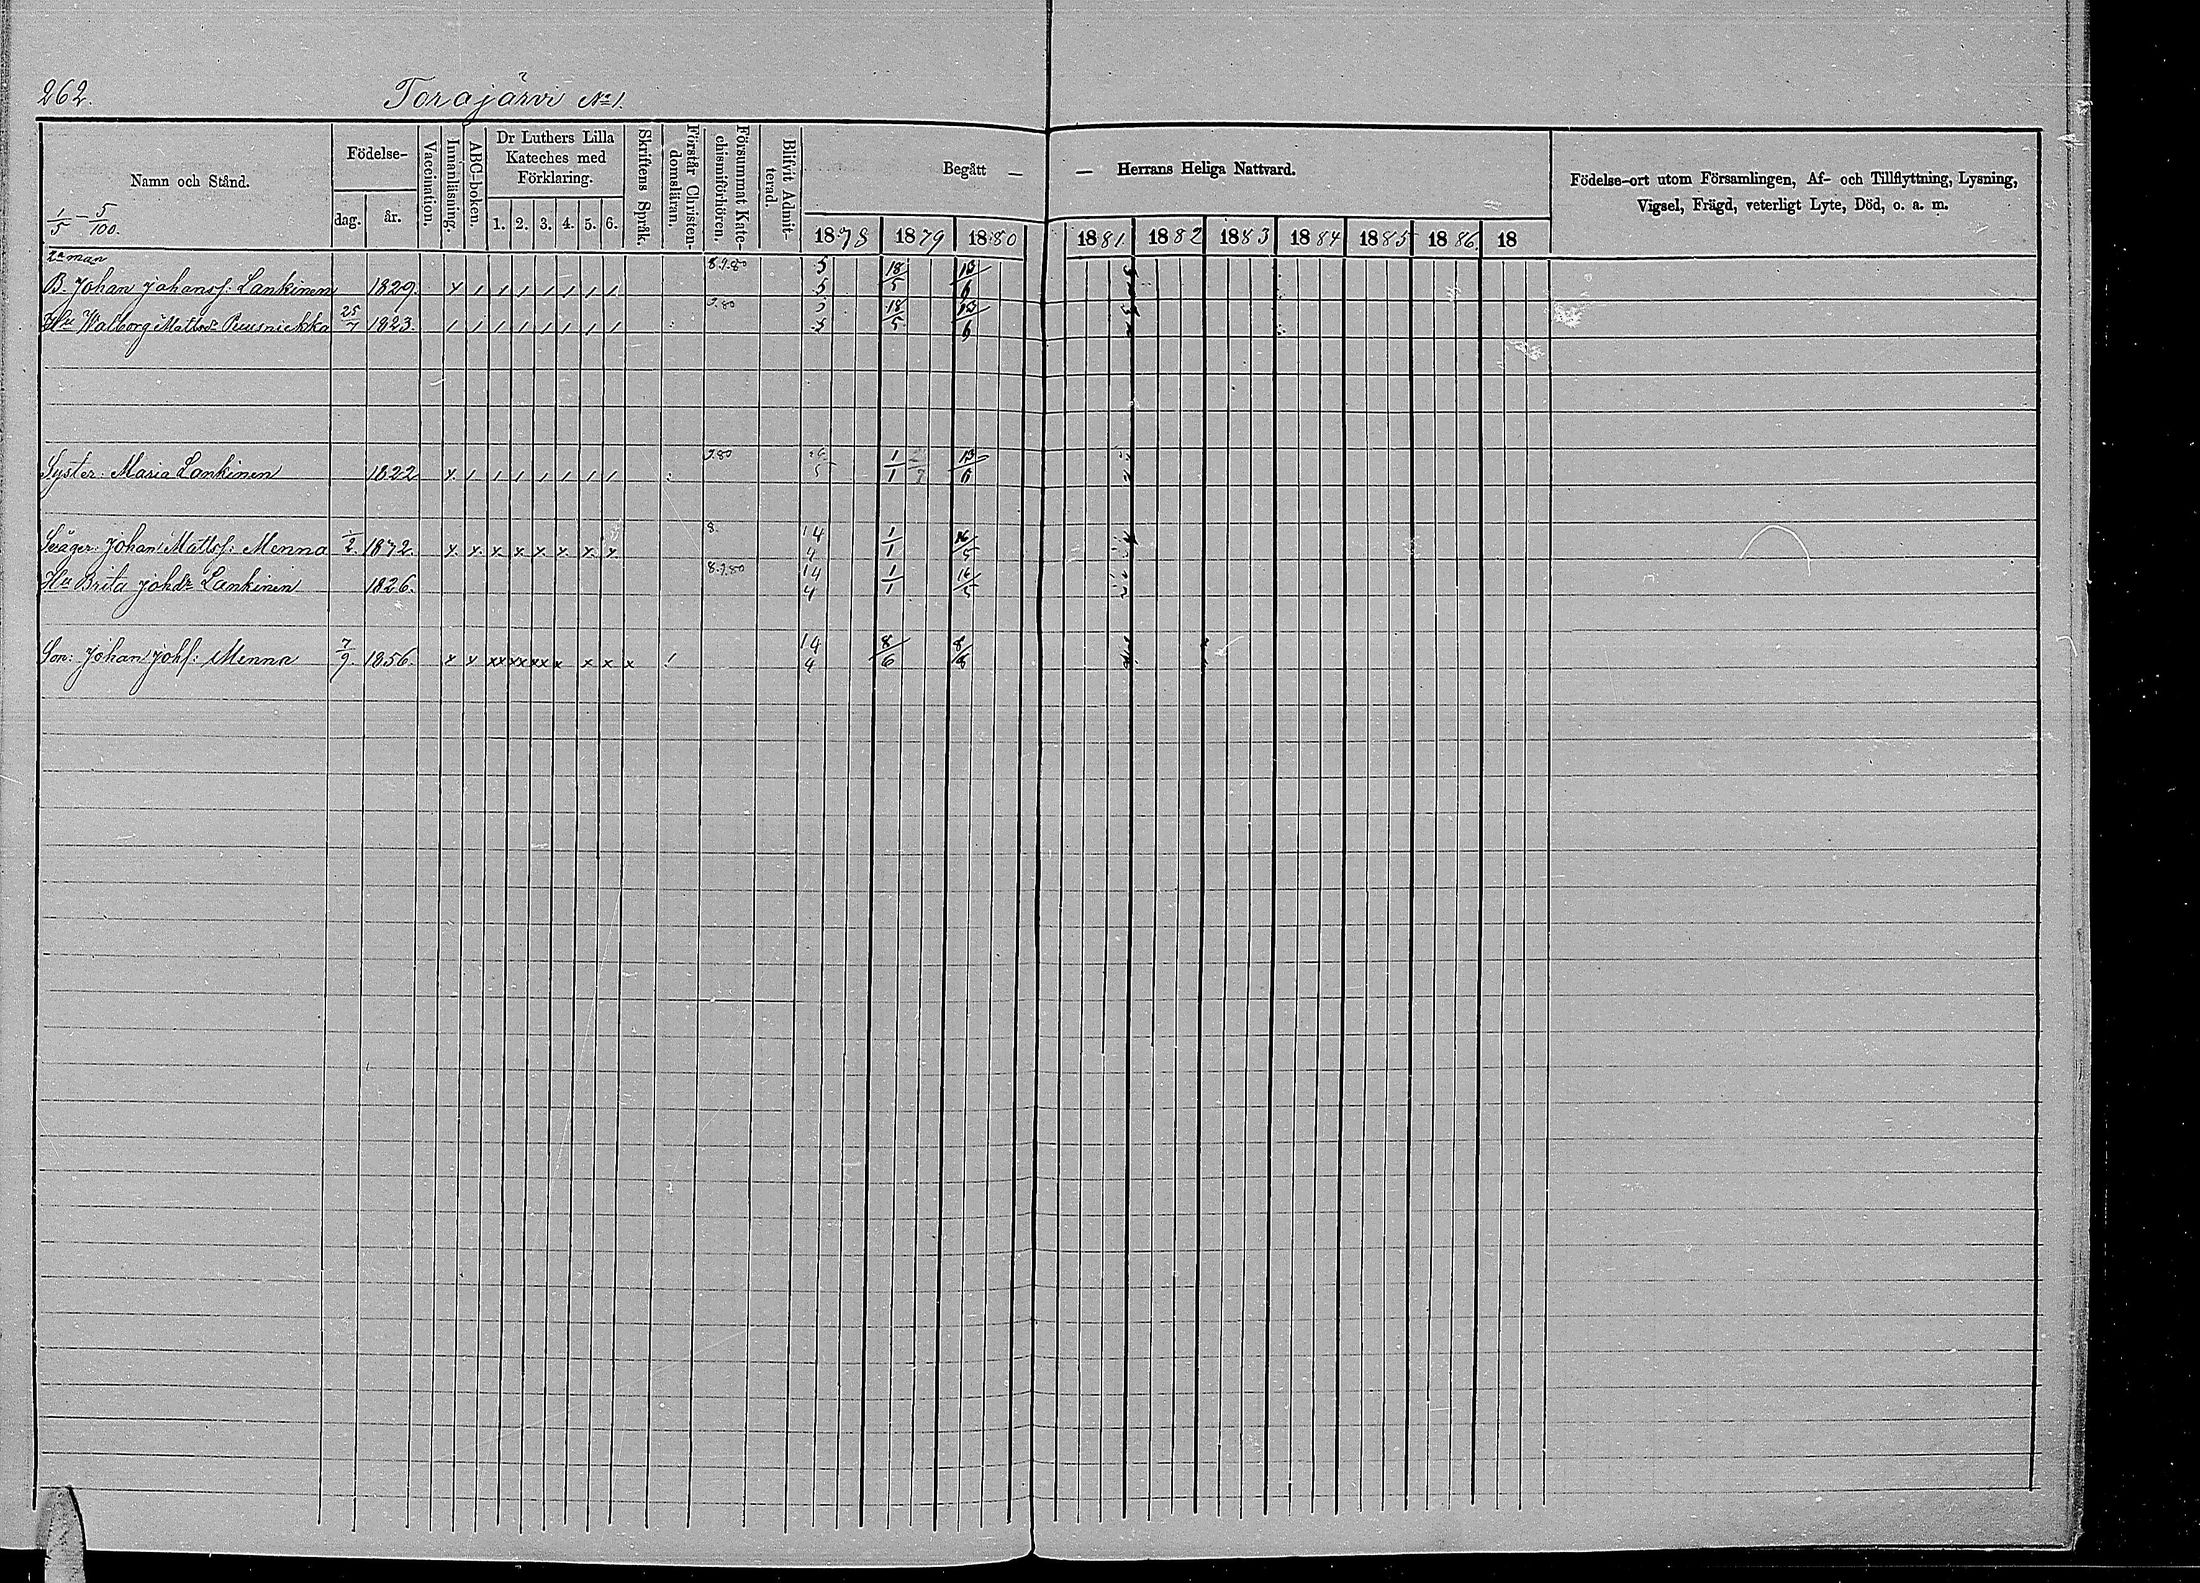 262.
Torajärvi No 1.
Namn och Stånd.
1/5 – 5/100.
Födelse-
dag.
år.
Vaccination.
Innanläsning.
ABC-boken.
Dr Luthers Lilla
Kateches med
Förklaring.
1. 2. 3. 4. 5. 6.
Skriftens Språk.
Förstår Christen-
domsläran.
Försummat Kate-
chismiförhören.
Blifvit Admit-
terad.
Begått —
— Herrans Heliga Nattvard.
1878 1879 1880 1881. 1882 1883 1884 1885 1886. 18
Födelse-ort utom Församlingen, Af- och Tillflyttning, Lysning,
Vigsel, Frägd, veterligt Lyte, Död, o. a. m.
2a man
B. Johan Johansf: Lankinen 1829. x / / / / / / / 8.9.80 5/5 18/5 13/6
Hu Walborg Mattsdr 25/7 1823. / / / / / / / / 9.80 5/5 18/5 13/6
Syster: Maria Lankinen 1822 x / / / / / / / 9.80 1/1 13/6
Johan Mattsf: Menna 1/2. 1872. x x x x x x x x 8. 14/4 1/1 16/5
Hu Brita Johdr Lankinen 1826. 8.9.80 14/4 1/1 16/5
Son: Johan Johsf: Menna 7/9. 1856. x x xx xx xx x x x x / 14/4 8/6 8/8